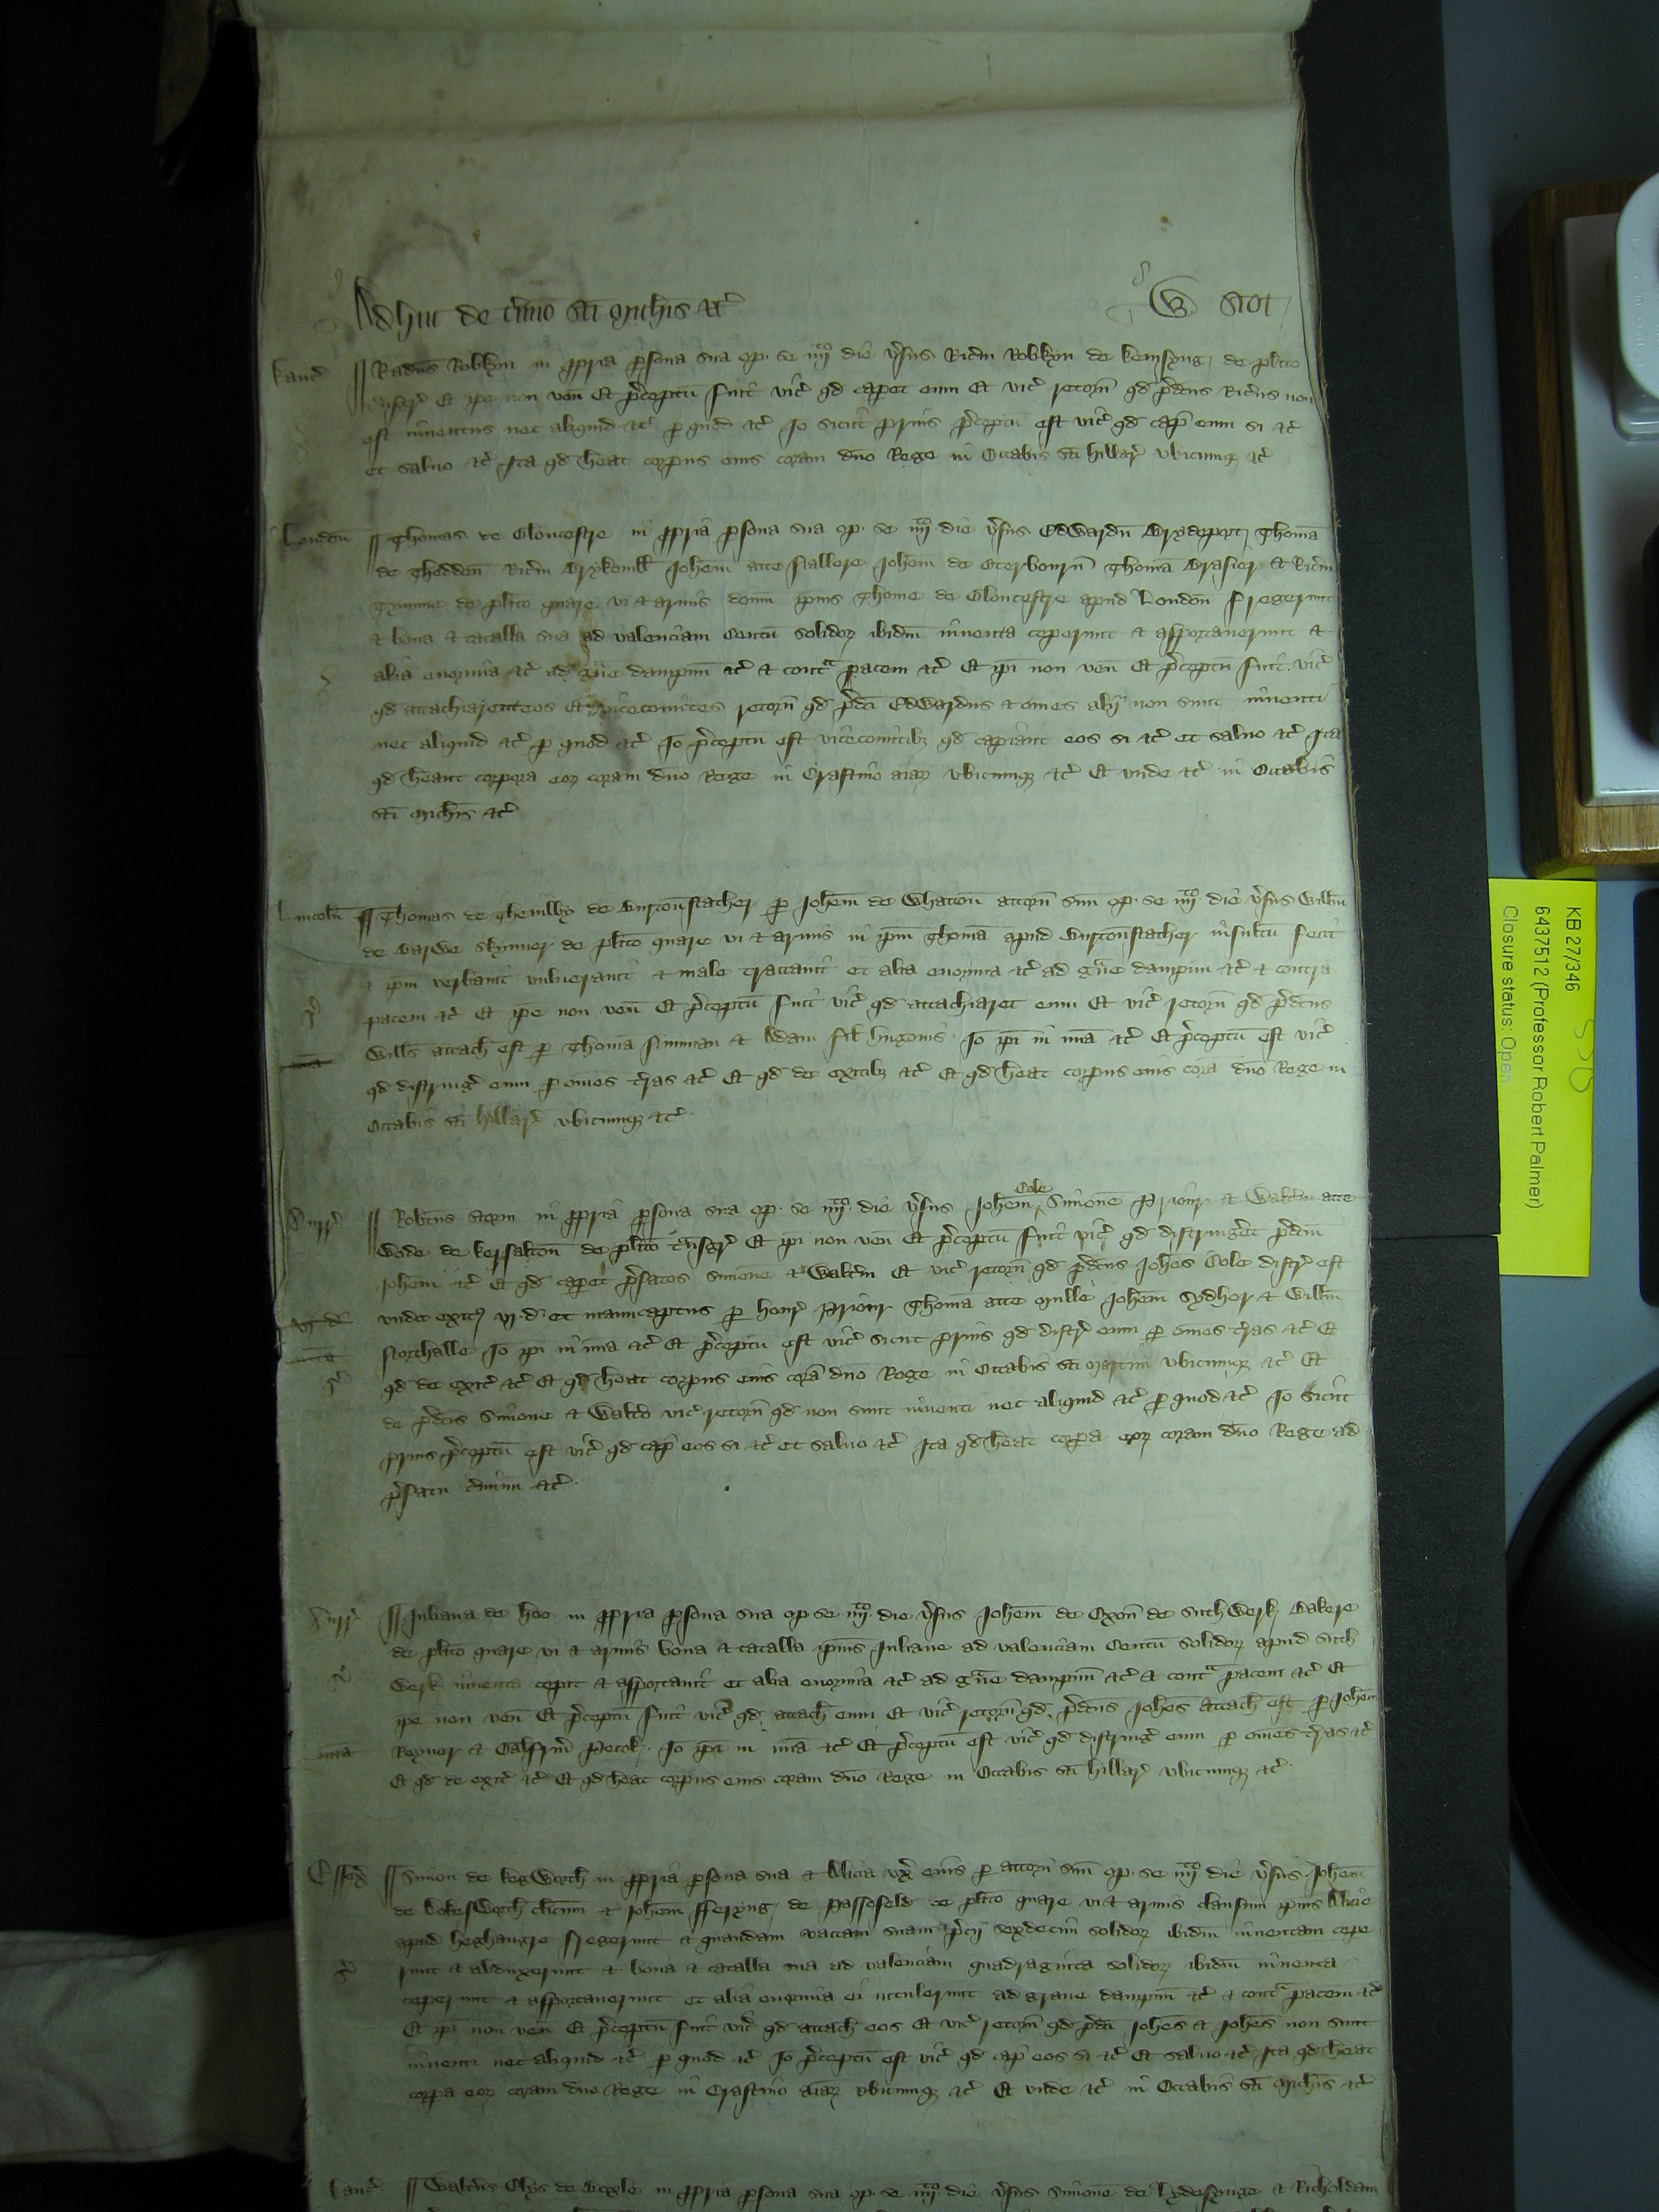 Adhuc de t'mino sc̃i Mich'is &c'
W Scot
Kanc' Rad'us Robkyn in p'pria p'sona sua op. se iiijto die v'sus Ric'm Robkyn de Kemsyng, de pl'ito
t'nsgr' Et ip'e non ven' Et p'ceptu' fuit vic' q'd caperet eum Et vic' retorn' q'd p'd'cus Ric'us non
est inventus nec aliquid &c' p' quod &c' Io sicut prius p'ceptu' est vic' q'd cap' eum si &c'
et salvo &c' Ita q'd h'eat corpus eius coram d'no Rege in Octabis s'ci Hillar' ubicumq' &c'
London' Thomas de Gloucestre in p'pria p'sona sua op. se iiijto die v'sus Edwardu' Brydeport, Thoma'
de Thedden' Ric'm Brykemll' Joh'em atte Stallere Joh'em de Oterbourn' Thoma' Brasier & Ric'm
de pl'ito quare vi & armis domu' ip'ius Thome de Gloucestre apud London' fregerunt
& bona & catalla sua ad valenciam Centu' solidor' ibid'm inventa ceperunt & asportaverunt &
alia enormia &c' ad g'ue dampnu' &c' & cont'a pacem &c' Et ip'i non ven' Et p'ceptu' fuit vic'
q'd attachiarent eos Et vicecomites retorn' q'd p'd'ci Edwardus & om'es alij non sunt inventi
nec aliquid &c' p' quod &c' Io p'ceptu' est vicecomitib' q'd capiant eos si &c' et salvo &c' Ita
q'd h'eant corpora eor' coram d'no Rege in Crastino a'iar' ubicumq' &c' Et unde &c' in Octabis
s'ci Mich'is &c'
Lincoln' Thomas de Theuilby de Burtonstather p' Joh'em de Whatton' attorn' suu' op. se iiijto die v'sus Will'm
de Barwe Skynner de pl'ito quare vi & armis in ip'm Thoma' apud Burtonstather insultu' fecit
& ip'm verbavit vulneravit & male tractavit et alia enormia &c' ad g'ue dampnu' &c' & contra
pacem &c' Et ip'e non ven' Et p'ceptu' fuit vic' q'd attachiaret eum Et vic' retorn' q'd p'd'cus
Will's attach' est p' Thoma' Symman & Adam fil' Hugonis Io ip'i in m'ia &c' Et p'ceptu' est vic'
q'd distring' eum p' om'es t'ras &c' Et q'd de exitib' &c' Et q'd h'eat corpus eius cora' d'no Rege in
Octabis s'ci Hillar' ubicumq' &c'
Surr' Rob'tus Storm in p'pria p'sona sua op. se iiijto die v'sus Joh'em Cole Simone' Priour & Walt'm atte
Wode de Kersalton' de pl'ito t'nsgr' Et ip'i non ven' Et p'ceptu' fuit vic' q'd distringeret p'd'cm
Joh'em &c' Et q'd caperet p'fatos Simone' & Walt'm Et vic' retorn' q'd p'd'cus Joh'es Cole distr' est
vj d' unde exit' vj d' et manucaptus p' Henr' Priour Thoma' atte Mulle Joh'em Sydher & Will'm
m'ia Northalle Io ip'i in m'ia &c' Et p'ceptu' est vic' sicut prius q'd distr' eum p' om'es t'ras &c' Et
q'd de exit' &c' Et q'd h'eat corpus eius cora' d'no Rege in Octabis s'ci Martini ubicumq' &c' Et
de p'd'cis Simone & Walt'o vic' retorn' q'd non sunt inventi nec aliquid &c' p' quod &c' Io sicut
prius p'ceptu' est vic' q'd cap' eos si &c' et salvo &c' Ita q'd h'eat corpora eor' coram d'no Rege ad
p'fatu' t'minu' &c'
Surr' Juliana de Hoo in p'pria p'sona sua op. se iiijto die v'sus Joh'em de Oxon' de Suthwerk, Bakere
de pl'ito quare vi & armis bona & catalla ip'ius Juliane ad valenciam Centu' solidor' apud Suth
werk inventa cepit & asportavit et alia enormia &c' ad g'ue dampnu' &c' & cont'a pacem &c' Et
ip'e non ven' Et p'ceptu' fuit vic' q'd attach' eum Et vic' retorn' q'd p'd'cus Joh'es attach' est p' Joh'em
m'ia Reyner & Galfr'm Pecok. Io ip'i in m'ia &c' Et p'ceptu' est vic' q'd distring' eum p' om'es t'ras &c'
Et q'd de exit' &c' Et q'd h'eat corpus eius coram d'no Rege in Octabis s'ci Hillar' ubicumq' &c'
Essex' Simon de Kegworth in p'pria p'sona sua & Alicia ux' eius p' attorn' suu' op. se iiijto die v'sus Joh'em
de Dokesworth cl'icum & Joh'em Fferyng, de Passefeld de pl'ito quare vi & armis clausum ip'ius Alicie
apud Heghaugre fregerunt & quandam vaccam suam p'cij sexdecim solidor' ibid'm inventam cepe
runt & abduxerunt & bona & catalla sua ad valenciam quadraginta solidor' ibid'm inventa
ceperunt & asportaverunt et alia enormia ei intulerunt ad grave dampnu' &c' & cont'a pacem &c'
Et ip'i non ven' Et p'ceptu' fuit vic' q'd attach' eos Et vic' retorn' q'd p'd'ci Joh'es & Joh'es non sunt
inventi nec aliquid &c' p' quod &c' Io p'ceptu' est vic' q'd cap' eos si &c' Et salvo &c' Ita q'd h'eat
corpora eor' coram d'no Rege in Crastino a'iar' ubicumq' &c' Et unde &c' in Octabis s'ci Mich'is &c'
Kanc' Walt'us Clys de Bogle in p'pria p'sona sua op. se iiijto die v'sus Simone' de Lydesynge & Richoldam
KB 27/346
6437512 (Professor Robert Palmer)
Closure status: Open